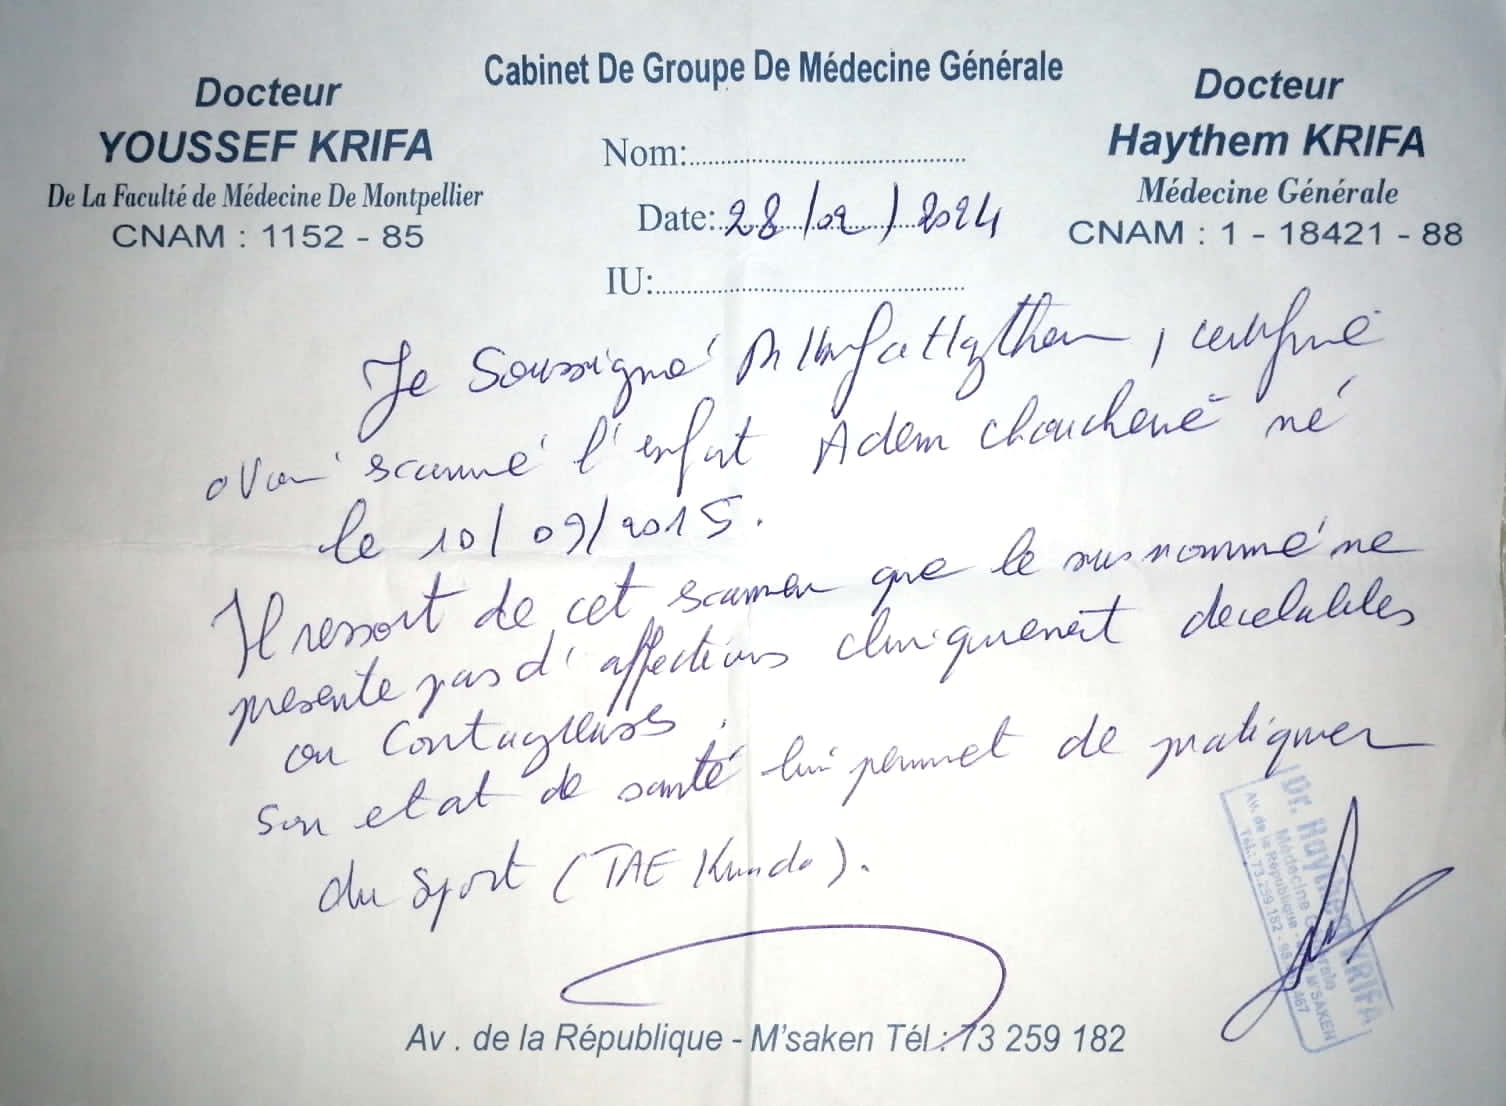 Cabinet De Groupe De Médecine Générale
Docteur
YOUSSEF KRIFA
De La Faculté de Médecine De Montpellier
CNAM : 1152 - 85
Docteur
Haythem KRIFA
Médecine Générale
CNAM : 1 - 18421 - 88
Nom:
Date: 28/02/2024
IU:
Je Soussigné Haythem, certifie
avoir examiné l'enfant Adem chouchene né
le 10/09/2015.
Il ressort de cet examen que le susnommé ne
présente pas d'affections cliniquement decelables
ou Contagieuses.
Son etat de santé lui permet de pratiquer
du Sport (TAE Kundo).
Dr. Haythem KRIFA
Médecine Générale
Av. de la République - M'SAKEN
Tél.: 73.259.182
Av . de la République - M'saken Tél : 73 259 182